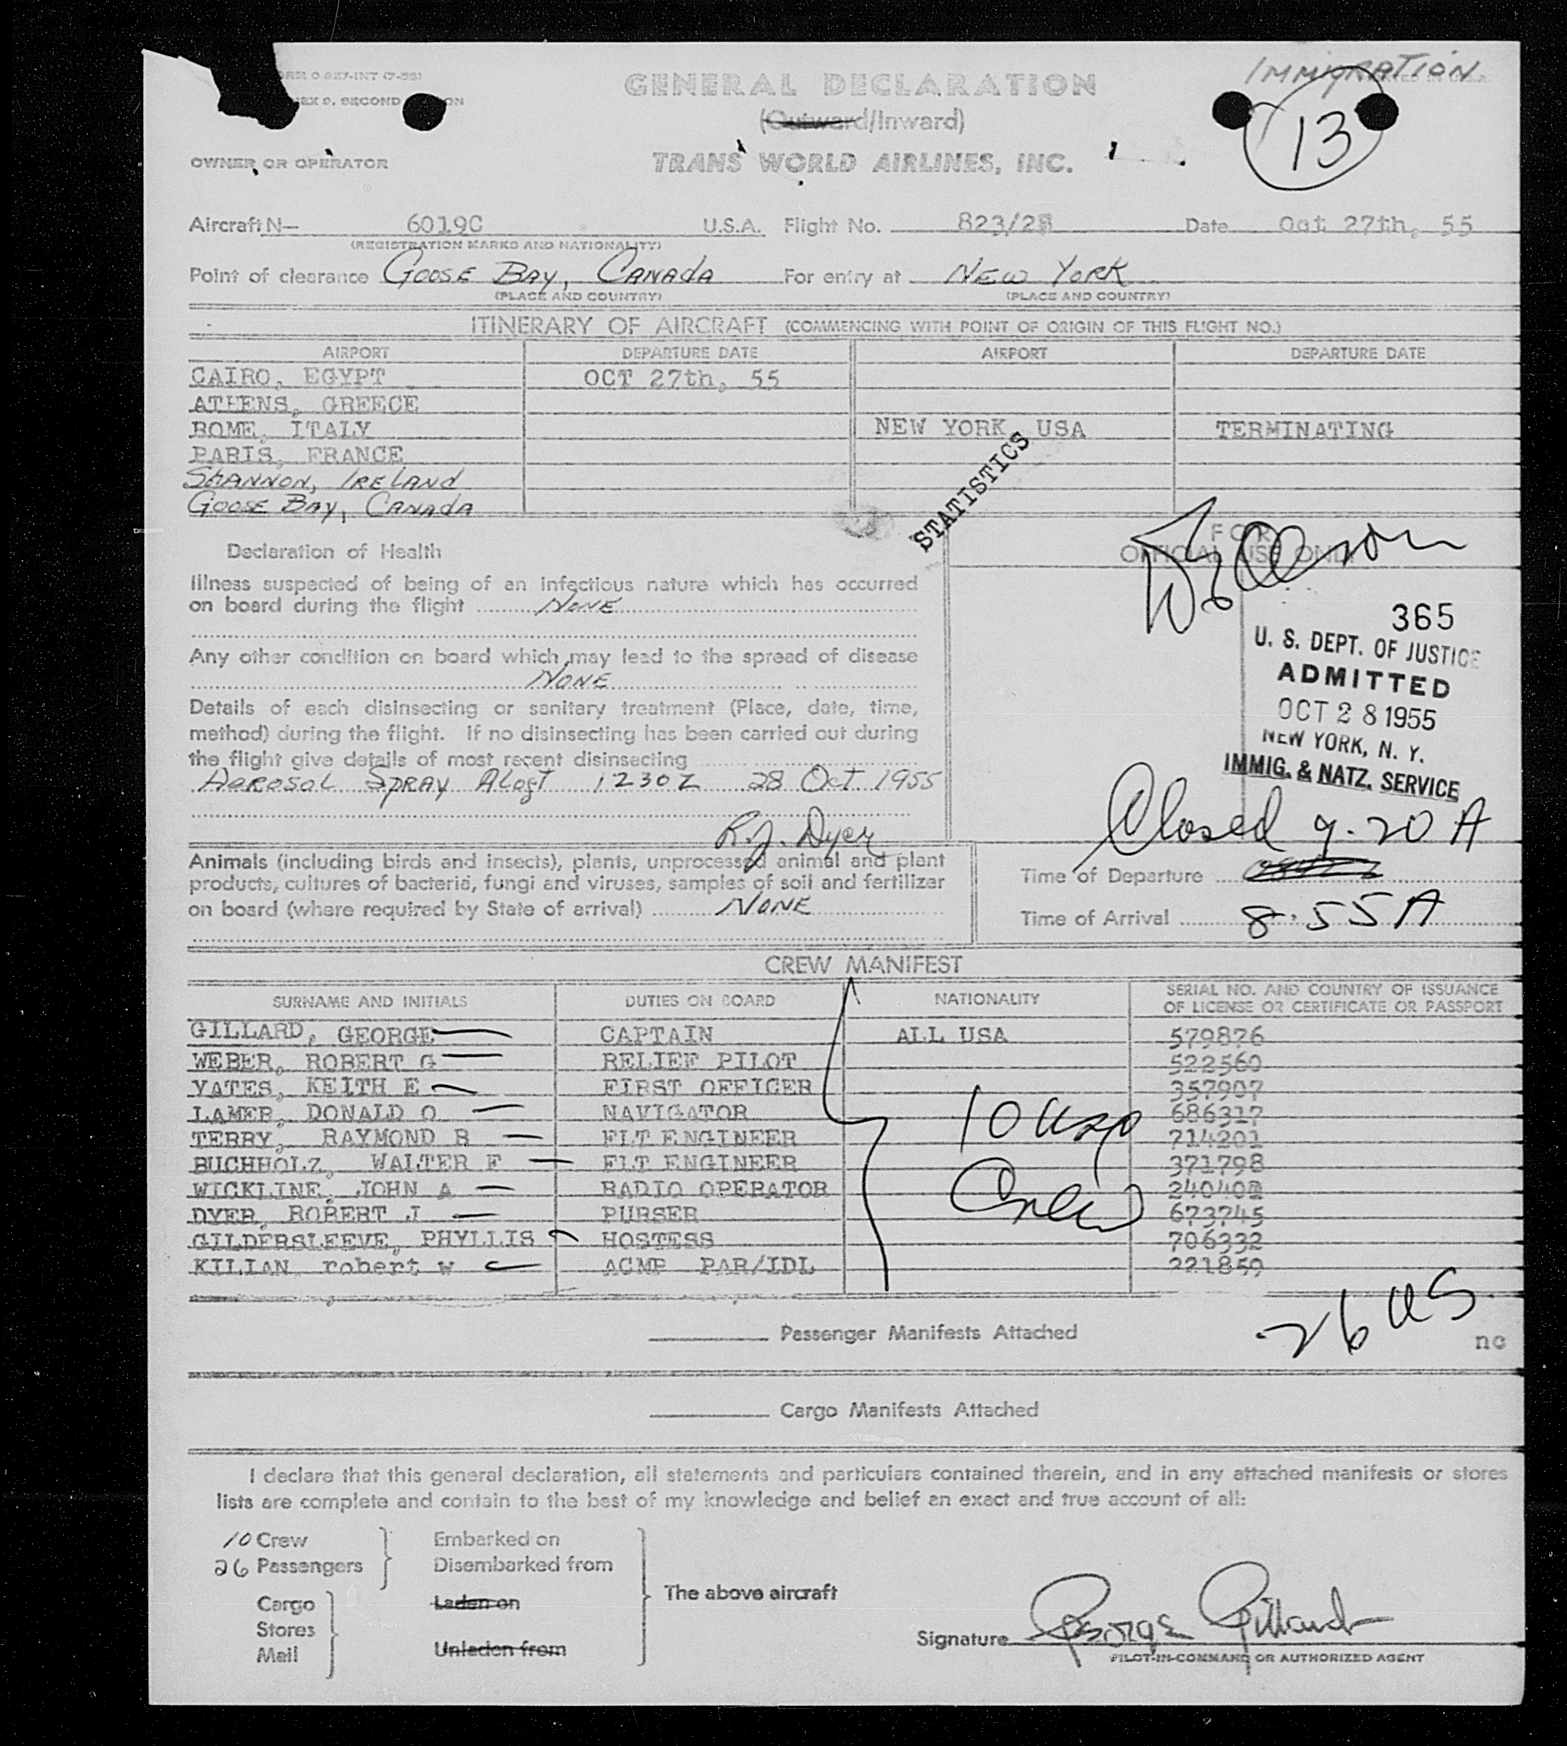 IMMIGRATION
GENERAL DECLARATION
13
(Outward/Inward)
OWNER OR OPERATOR
TRANS WORLD AIRLINES, INC.
Aircraft N- 6019C U.S.A. Flight No. 823/28 Date Oct 27th, 55
(REGISTRATION MARKS AND NATIONALITY)
Point of clearance GOOSE BAY, CANADA For entry at NEW YORK
(PLACE AND COUNTRY) (PLACE AND COUNTRY)
ITINERARY OF AIRCRAFT (COMMENCING WITH POINT OF ORIGIN OF THIS FLIGHT NO.)
AIRPORT DEPARTURE DATE AIRPORT DEPARTURE DATE
CAIRO, EGYPT OCT 27th, 55
ATHENS, GREECE
ROME, ITALY NEW YORK, USA TERMINATING
PARIS, FRANCE
SHANNON, IRELAND
GOOSE BAY, CANADA
STATISTICS
FOR
OFFICIAL USE ONLY
Declaration of Health
Illness suspected of being of an infectious nature which has occurred
on board during the flight NONE
Any other condition on board which may lead to the spread of disease
NONE
Details of each disinsecting or sanitary treatment (Place, date, time,
method) during the flight. If no disinsecting has been carried out during
the flight give details of most recent disinsecting
AEROSOL SPRAY 1230Z 28 Oct 1955
R.J. Dyer
365
U. S. DEPT. OF JUSTICE
ADMITTED
OCT 28 1955
NEW YORK, N. Y.
IMMIG. & NATZ. SERVICE
Closed 9.20 A
Animals (including birds and insects), plants, unprocessed animal and plant
products, cultures of bacteria, fungi and viruses, samples of soil and fertilizer
on board (where required by State of arrival) NONE
Time of Departure
Time of Arrival 8.55 A
CREW MANIFEST
SURNAME AND INITIALS DUTIES ON BOARD NATIONALITY SERIAL NO. AND COUNTRY OF ISSUANCE
OF LICENSE OR CERTIFICATE OR PASSPORT
GILLARD, GEORGE CAPTAIN ALL USA 579876
WEBER, ROBERT G RELIEF PILOT 522560
YATES, KEITH E FIRST OFFICER 357907
LAMER, DONALD O NAVIGATOR 686317
TERRY, RAYMOND R FLT ENGINEER 714201
BUCHHOLZ, WALTER F FLT ENGINEER 371798
WICKLINE, JOHN A RADIO OPERATOR
DYER, ROBERT J PURSER 673745
GILDERSLEEVE, PHYLLIS HOSTESS 706332
KILIAN robert w ACMP PAR/IDL 221859
10
Crew
26 US
Passenger Manifests Attached
nc
Cargo Manifests Attached
I declare that this general declaration, all statements and particulars contained therein, and in any attached manifests or stores
lists are complete and contain to the best of my knowledge and belief an exact and true account of all:
10 Crew Embarked on
26 Passengers Disembarked from
The above aircraft
Cargo Laden on
Stores
Mail Unladen from
Signature George Gillard
PILOT-IN-COMMAND OR AUTHORIZED AGENT